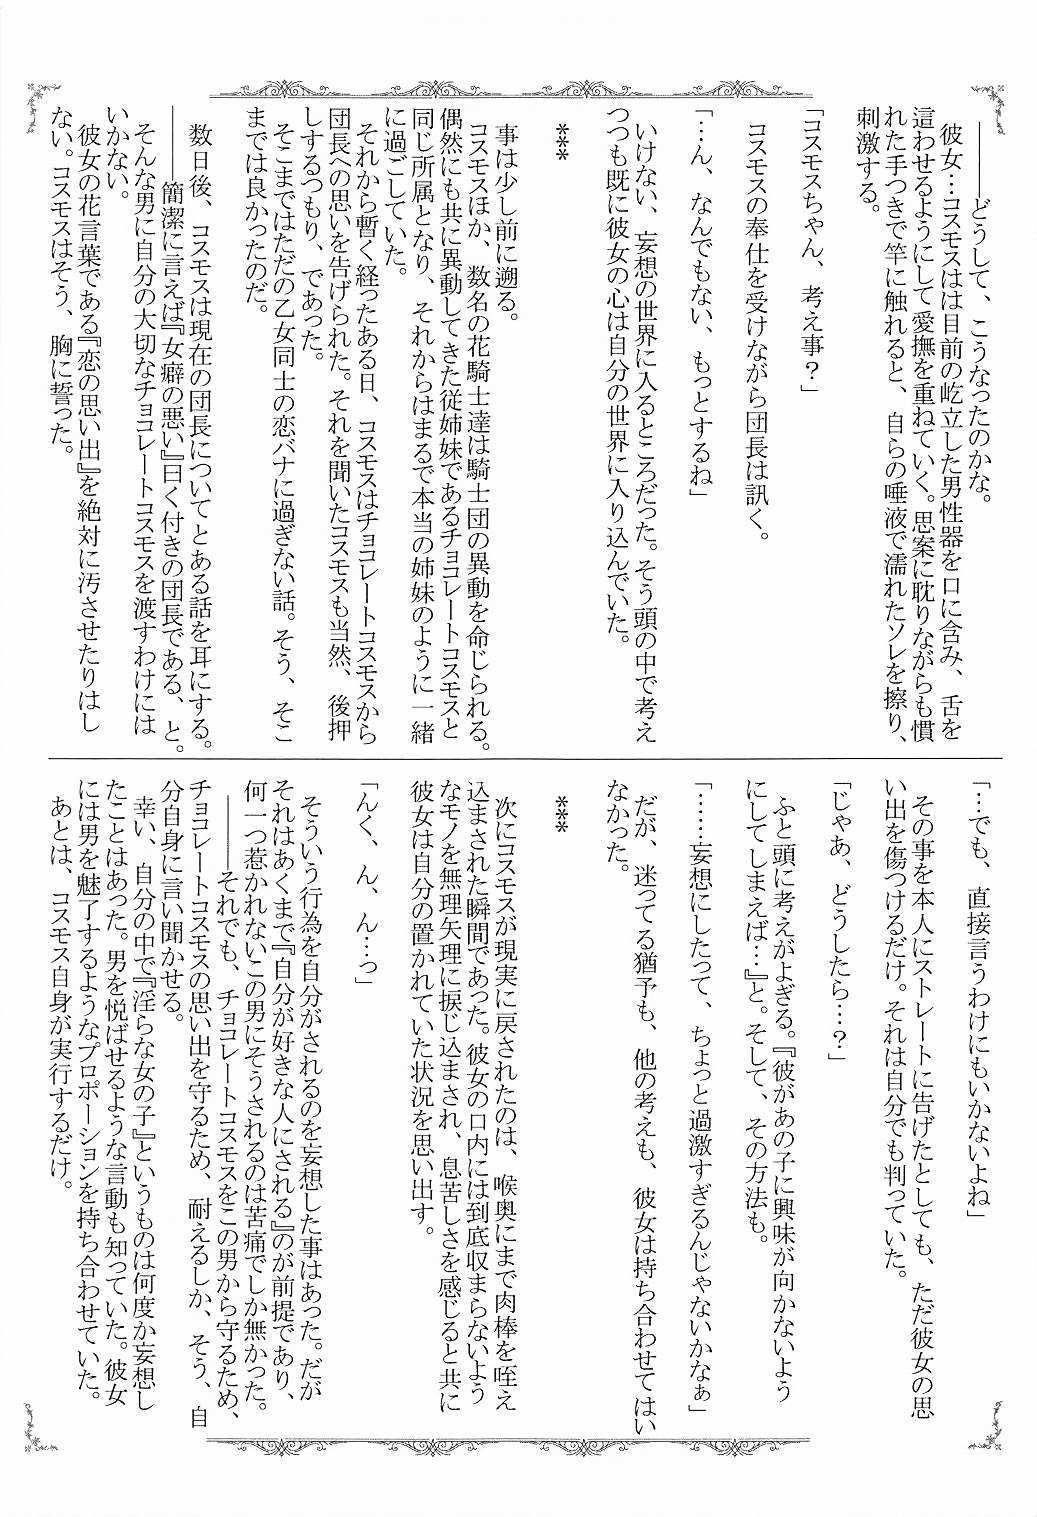 ――――どうして、こうなったのかな。
彼女…コスモスはは目前の屹立した男性器を口に含み、舌を
這わせるようにして愛撫を重ねていく。思案に耽りながらも慣
れた手つきで竿に触れると、自らの唾液で濡れたソレを擦り、
刺激する。
「コスモスちゃん、考え事？」
コスモスの奉仕を受けながら団長は訊く。
「…ん、なんでもない、もっとするね」
いけない、妄想の世界に入るところだった。そう頭の中で考え
つつも既に彼女の心は自分の世界に入り込んでいた。
***
事は少し前に遡る。
コスモスほか、数名の花騎士達は騎士団の異動を命じられる。
偶然にも共に異動してきた従姉妹であるチョコレートコスモスと
同じ所属となり、それからはまるで本当の姉妹のように一緒
に過ごしていた。
それから暫く経ったある日、コスモスはチョコレートコスモスから
団長への思いを告げられた。それを聞いたコスモスも当然、後押
しするつもり、であった。
そこまではただの乙女同士の恋バナに過ぎない話。そう、そこ
までは良かったのだ。
数日後、コスモスは現在の団長についてとある話を耳にする。
――――簡潔に言えば『女癖の悪い』曰く付きの団長である、と。
そんな男に自分の大切なチョコレートコスモスを渡すわけには
いかない。
彼女の花言葉である『恋の思い出』を絶対に汚させたりはし
ない。コスモスはそう、胸に誓った。
「…でも、直接言うわけにもいかないよね」
その事を本人にストレートに告げたとしても、ただ彼女の思
い出を傷つけるだけ。それは自分でも判っていた。
「じゃあ、どうしたら…？」
ふと頭に考えがよぎる。『彼があの子に興味が向かないよう
にしてしまえば…』と。そして、その方法も。
「……妄想にしたって、ちょっと過激すぎるんじゃないかなぁ」
だが、迷ってる猶予も、他の考えも、彼女は持ち合わせてはい
なかった。
***
次にコスモスが現実に戻されたのは、喉奥にまで肉棒を咥え
込まされた瞬間であった。彼女の口内には到底収まらないよう
なモノを無理矢理に捩じ込まされ、息苦しさを感じると共に
彼女は自分の置かれていた状況を思い出す。
「んく、ん、ん…っ」
そういう行為を自分がされるのを妄想した事はあった。だが
それはあくまで『自分が好きな人にされる』のが前提であり、
何一つ惹かれないこの男にそうされるのは苦痛でしか無かった。
――――それでも、チョコレートコスモスをこの男から守るため、
チョコレートコスモスの思い出を守るため、耐えるしか、そう、自
分自身に言い聞かせる。
幸い、自分の中で『淫らな女の子』というものは何度か妄想し
たことはあった。男を悦ばせるような言動も知っていた。彼女
には男を魅了するようなプロポーションを持ち合わせていた。
あとは、コスモス自身が実行するだけ。